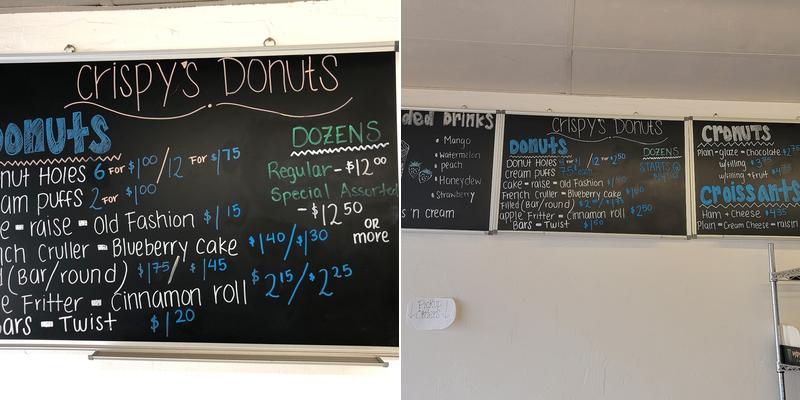 Crispy's Donuts
Donuts
DOZENS
nut Holes 6 FOR $1.00/12 FOR $1.75
am puffs 2 FOR $1.00
Regular - $12.00
Special Assorted
- $12.50
OR
more
e = raise = Old Fashion $1.15
nch Cruller = Blueberry Cake $1.40/$1.30
(Bar/round) $1.75/$1.45
e Fritter = Cinnamon roll $2.15/$2.25
Bars = Twist $1.20
ded Drinks
Mango
watermelon
peach
Honeydew
Strawberry
s 'n cream
Crispy's Donuts
Donuts
DOZENS
Donut Holes
/12 FOR $2.50
Cream puffs
STARTS @
Cake = raise = Old Fashion
French Cruller = Blueberry Cake
Filled (Bar/round)
apple Fritter = Cinnamon roll $2.50
Bars = Twist
Cronuts
Plain = glaze = Chocolate
w/filling
w/filling + Fruit
Croissants
Ham + Cheese
Plain = Cream Cheese = raisin
Pickup
Orders